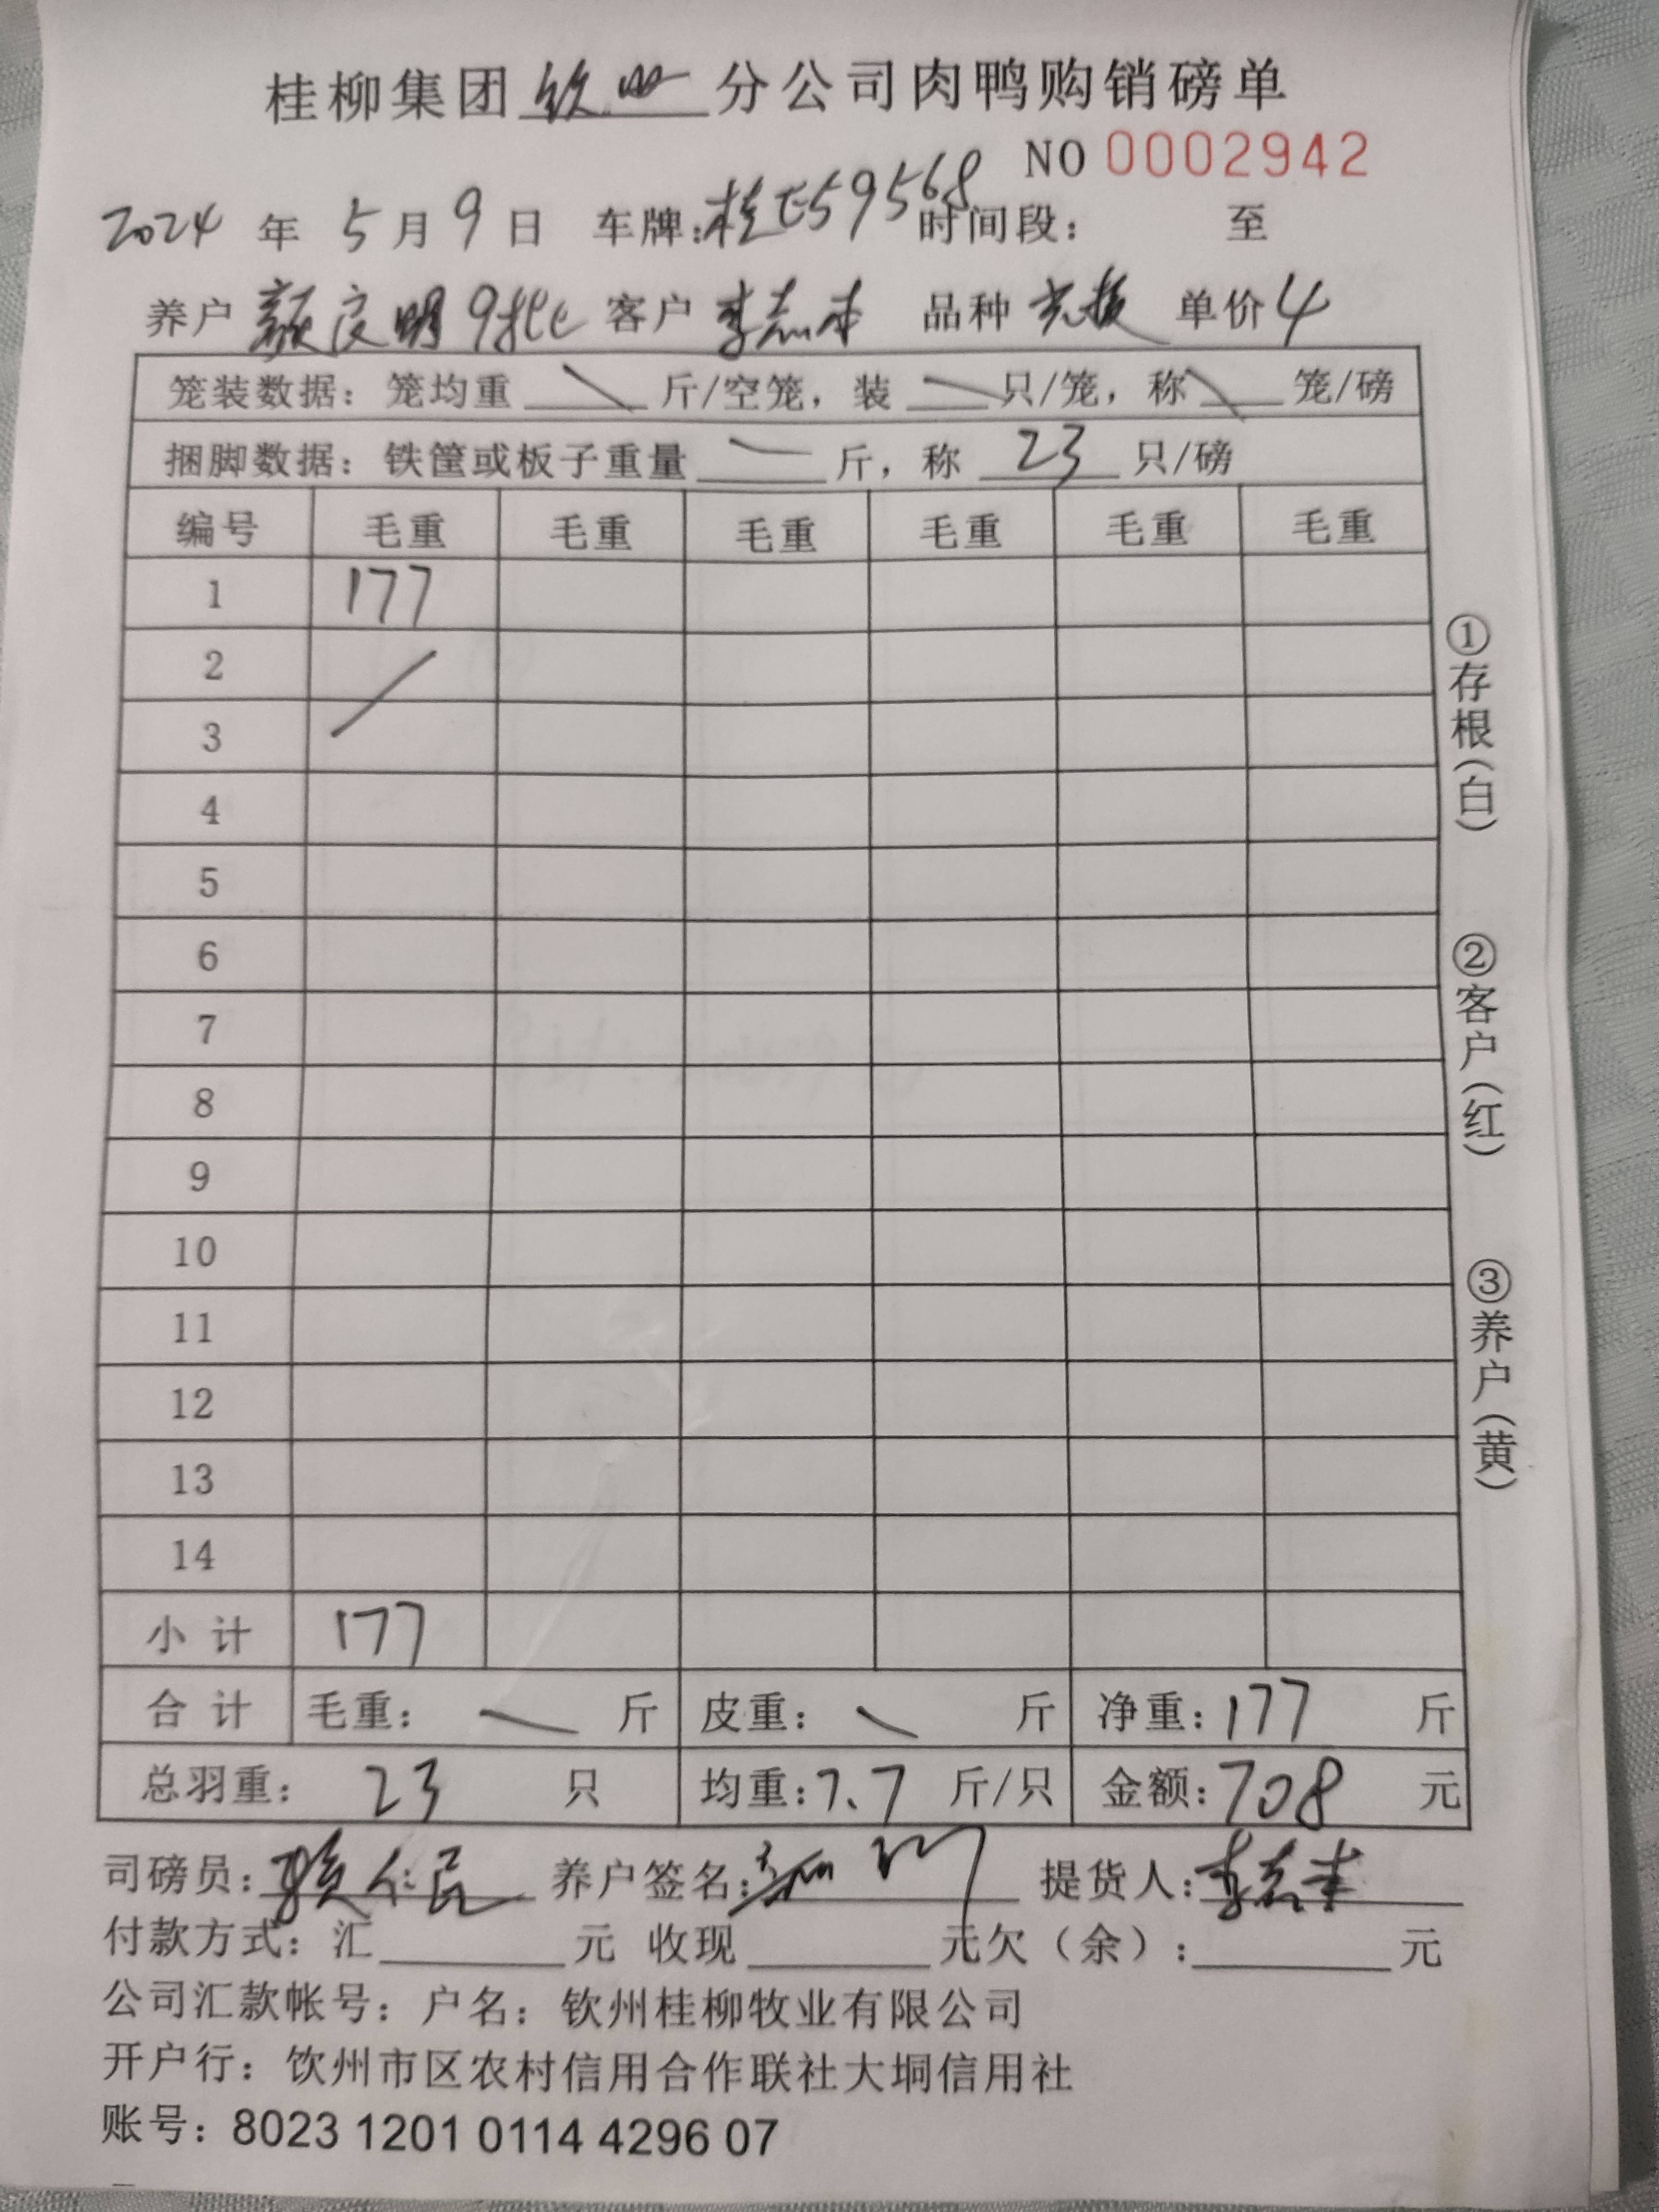 桂柳集团钦州分公司肉鸭购销磅单
NO 0002942
2024 年 5 月 9 日 车牌:桂E59568 时间段: 至
养户 颜良明 9批 客户 李志 品种 单价 4
笼装数据: 笼均重 斤/空笼, 装 只/笼, 称 笼/磅
捆脚数据: 铁筐或板子重量 斤, 称 23 只/磅
编号 毛重 毛重 毛重 毛重 毛重 毛重
1 177
2
3
4
5
6
7
8
9
10
11
12
13
14
小 计 177
合 计 毛重: 斤 皮重: 斤 净重: 177 斤
总羽重: 23 只 均重: 7.7 斤/只 金额: 708 元
司磅员: 仁民 养户签名: 提货人: 李志
付款方式: 汇 元 收现 元欠(余): 元
公司汇款帐号: 户名: 钦州桂柳牧业有限公司
开户行: 钦州市区农村信用合作联社大垌信用社
账号: 8023 1201 0114 4296 07
①存根(白)
②客户(红)
③养户(黄)